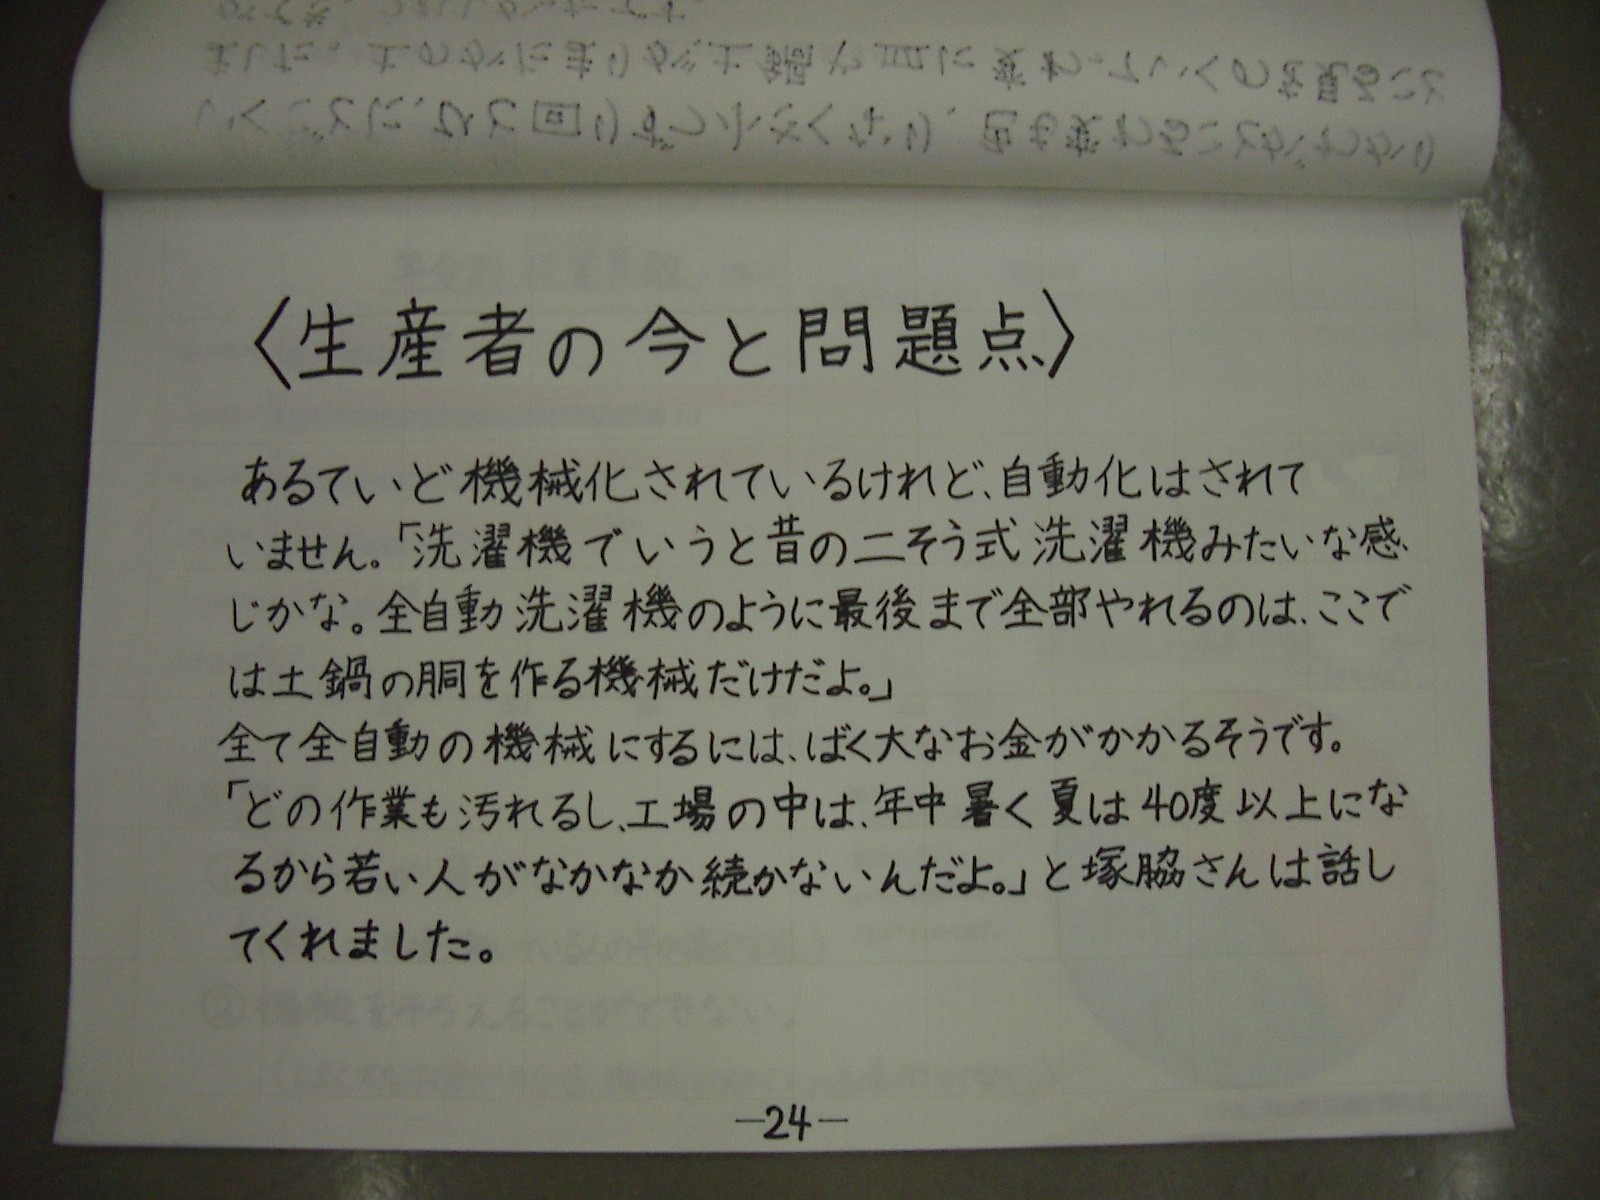 〈生産者の今と問題点〉
あるていど機械化されているけれど、自動化はされて
いません。「洗濯機でいうと昔の二そう式洗濯機みたいな感
じかな。全自動洗濯機のように最後まで全部やれるのは、ここで
は土鍋の胴を作る機械だけだよ。」
全て全自動の機械にするには、ばく大なお金がかかるそうです。
「どの作業も汚れるし、工場の中は、年中暑く夏は40度以上にな
るから若い人がなかなか続かないんだよ。」と塚脇さんは話し
てくれました。
—24—